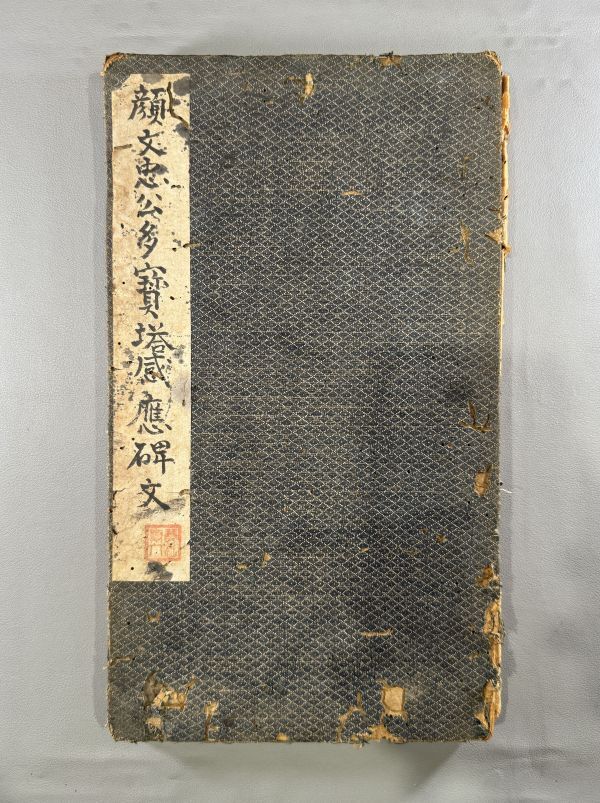 顔文忠公多寳塔感應碑文